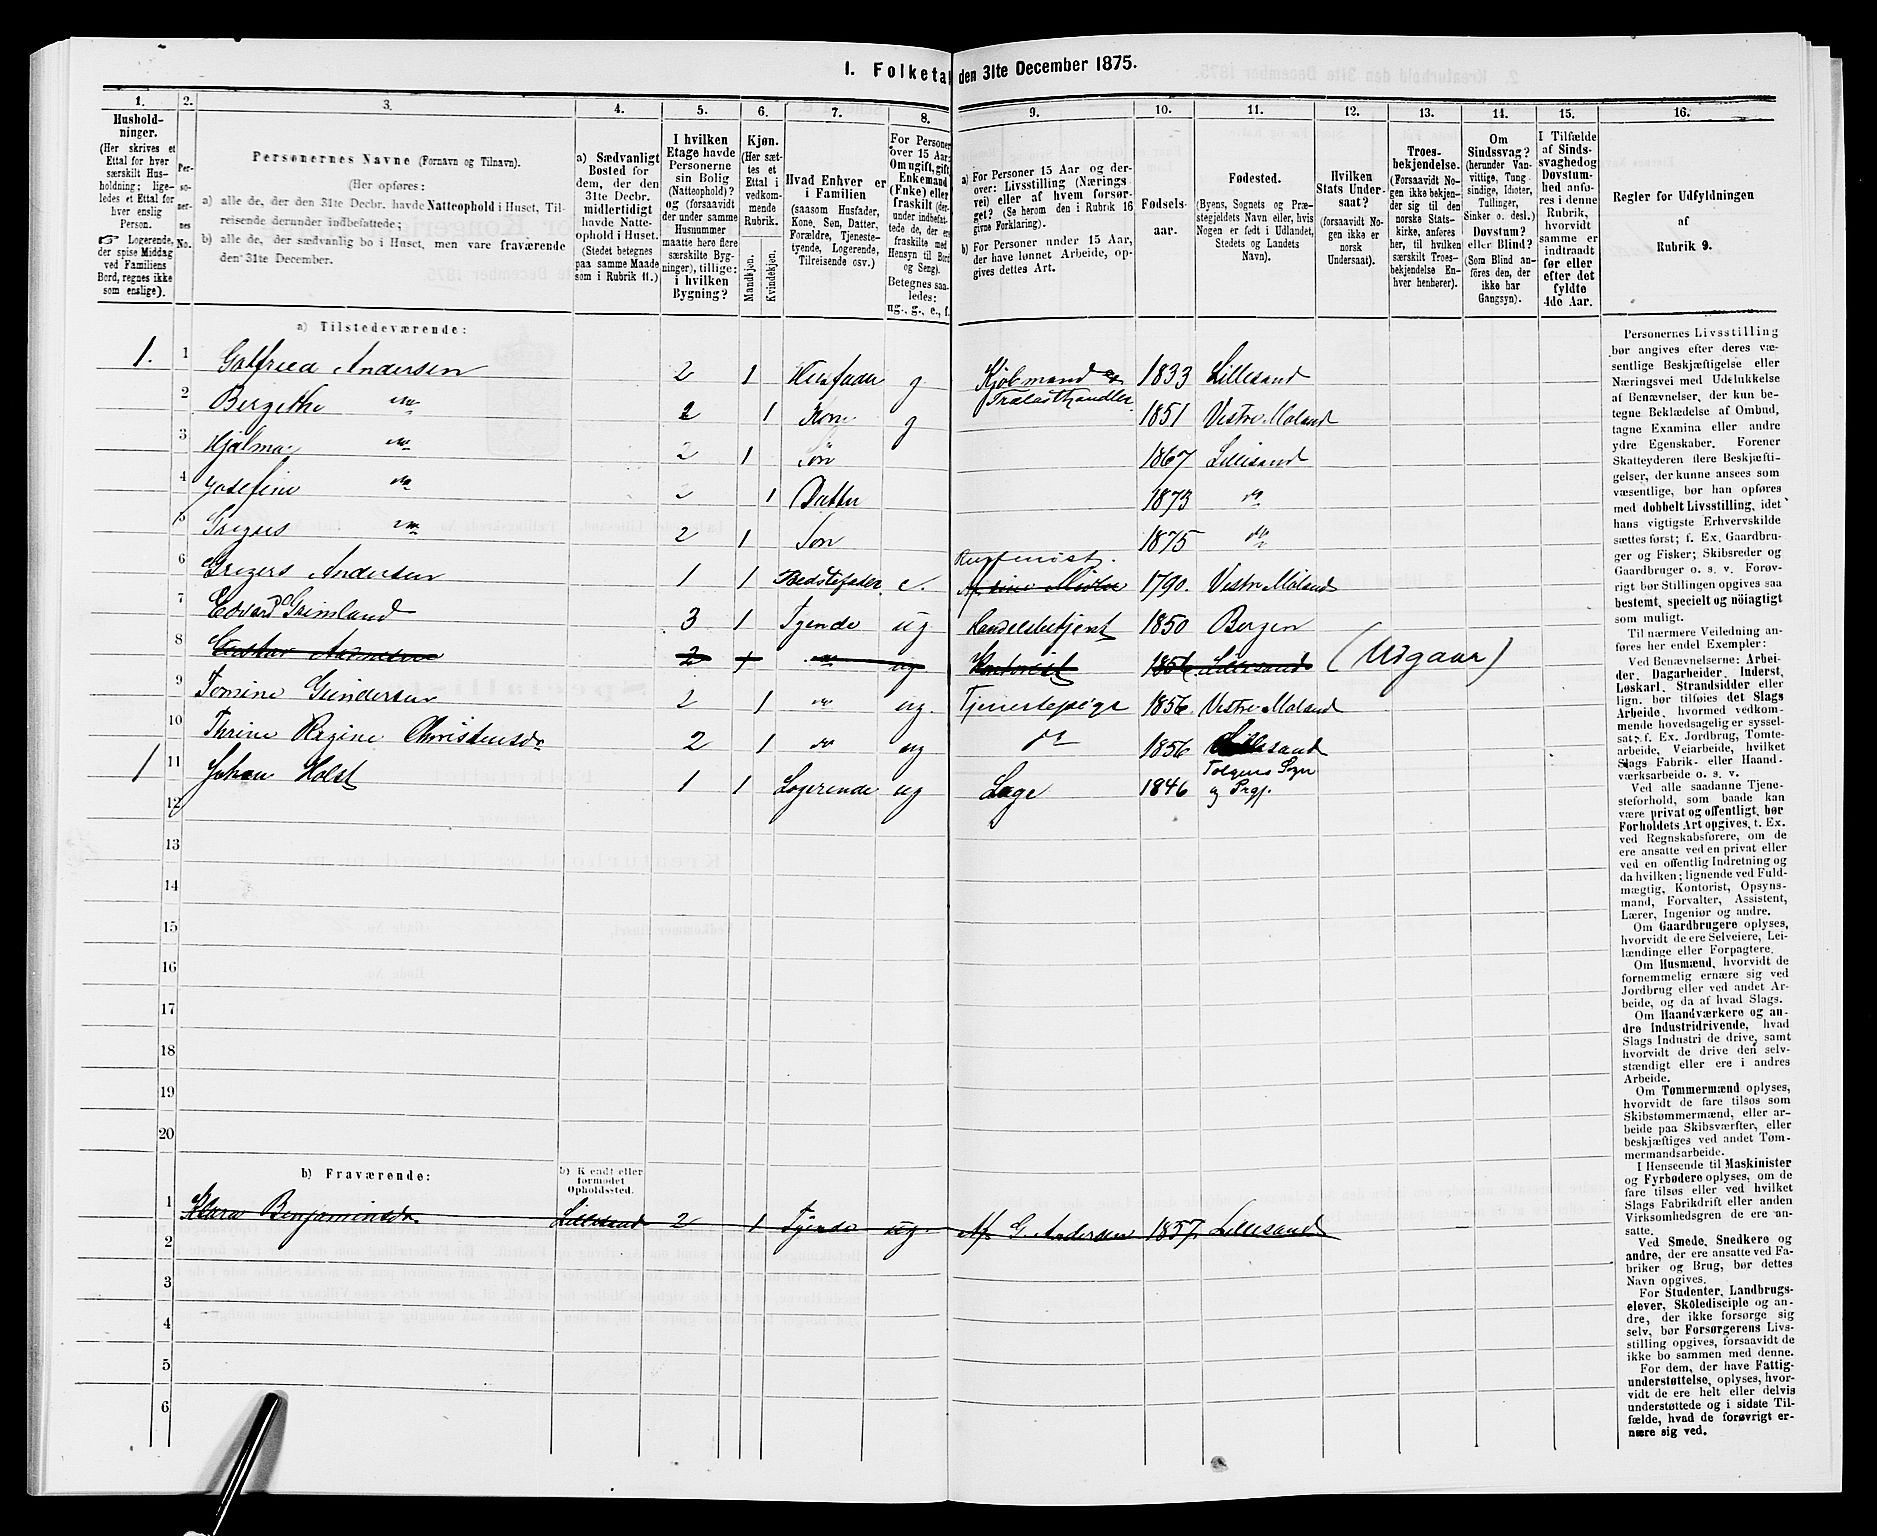 I. Folketal den 31te December 1875.
1. 2. 3. 4. 5. 6. 7. 8. 9. 10. 11. 12. 13. 14. 15. 16.
Hushold-
ninger.
(Her skrives et
Ettal for hver
særskilt Hus-
holdning; lige-
ledes et Ettal for
hver enslig
Person.
☞ Logerende,
der spise Middag
ved Familiens
Bord, regnes ikke
som enslige).
Per-
so-
ner-
nes
No.
Personernes Navne (Fornavn og Tilnavn).
(Her opføres:
a) alle de, der den 31te Decbr. havde Natteophold i Huset, Til-
reisende derunder indbefattede;
b) alle de, der sædvanlig bo i Huset, men vare fraværende
den 31te December.
a) Sædvanligt
Bosted for
dem, der den
31te Decbr.
midlertidigt
havde Natte-
ophold i Huset.
(Stedet betegnes
paa samme Maade
som i Rubrik 11.)
I hvilken
Etage havde
Personerne
sin Bolig
(Natteophold)?
(forsaavidt
der under samme
Husnummer
maatte høre flere
særskilte Byg-
ninger), tillige:
i hvilken
Bygning?
Kjøn.
(Her sæt-
tes et
Ettal i
vedkom-
mende
Rubrik.
Mandkjøn.
Kvindekjøn.
Hvad Enhver er
i Familien
(saasom Husfader,
Kone, Søn, Datter,
Forældre, Tjeneste-
tyende, Logerende,
Tilreisende osv.)
For Personer
over 15 Aar:
Om ugift, gift,
Enkemand
(Enke) eller
fraskilt (der-
under indbefat-
tede de, der ere
fraskilte med
Hensyn til Bord
og Seng).
Betegnes saa-
ledes:
ug., g., e., f.
a) For Personer 15 Aar og der-
over: Livsstilling (Nærings-
vei) eller af hvem forsør-
get? (Se herom den i Rubrik 16
givne Forklaring).
b) For Personer under 15 Aar,
der have lønnet Arbeide, op-
gives dettes Art.
Fødsels-
aar.
Fødested.
(Byens, Sognets og Præ-
stegjeldets Navn eller, hvis
Nogen er født i Udlandet,
Stedets og Landets
Navn).
Hvilken
Stats Under-
saat?
(forsaavidt No-
gen ikke er
norsk
Undersaat).
Troes-
bekjendelse.
(Forsaavidt No-
gen ikke bekjen-
der sig til den
norske Stats-
kirke, anføres
her, til hvilken
særskilt Troes-
bekjendelse En-
hver henhører).
Om
Sindssvag?
(herunder Van-
vittige, Tung-
sindige, Idioter,
Tullinger,
Sinker o. desl.)
Døvstum?
eller Blind?
(Som Blind an-
føres den, der
ikke har
Gangsyn).
I Tilfælde
af Sinds-
svaghed og
Døvstum-
hed anfø-
res i denne
Rubrik,
hvorvidt
samme er
indtraadt
før eller
efter det
fyldte
4de Aar.
Regler for Udfyldningen
af
Rubrik 9.
a) Tilstedeværende:
1. 1 Gotfried Andersen 2 1 Husfader g. Kjøbmand og Trælasthandler 1833 Lillesand
2 Bergethe do 2 1 Kone g 1851 Vestre Moland
3 Hjalmar do 2 1 Søn 1867 Lillesand
4 Josefine do 2 1 Datter 1873 do
5 Gregers do 2 1 Søn 1875 do
6 Gregers Andersen 1 1 Bedstefader e. 1790. Vestre Moland
7 Edvard Grimland 3 1 Tyende ug Handelsbetjent 1850 Bergen
8 Andersen 2 1 do ug Kontorist 1856 Lillesand (Udgaar)
9 Tomine Gundersen 2 1 do ug. Tjenestepige 1856. Vestre Moland
10 Thrine Regine Christensdr 2 1 do ug do 1856 Lillesand
1 11 Johan Holst 1 1 Logerende ug Læge 1846 Tolgens Sogn og Prgj.
12
13
14
15
16
17
18
19
20
b) Fraværende:
b) Kjendt eller
formodet
Opholdssted.
1 Klara Benjaminsdr. Lillesand 2 1 Tyende ug Af G. Andersen 1857. Lillesand
2
3
4
5
6
Personernes Livsstilling
bør angives efter deres væ-
sentlige Beskjæftigelse eller
Næringsvei med Udelukkelse
af Benævnelser, der kun be-
tegne Beklædelse af Ombud,
tagne Examina eller andre
ydre Egenskaber. Forener
Skatteyderen flere Beskjæfti-
gelser, der kunne ansees som
væsentlige, bør han opføres
med dobbelt Livsstilling, idet
hans vigtigste Erhvervskilde
sættes først; f. Ex. Gaardbru-
ger og Fisker; Skibsreder og
Gaardbruger o. s. v. Forøv-
rigt bør Stillingen opgives saa
bestemt, specielt og nöiagtigt
som muligt.
Til nærmere Veiledning an-
føres her endel Exempler:
Ved Benævnelserne: Arbei-
der, Dagarbeider, Inderst,
Løskarl, Strandsidder eller
lign. bør tilføies det Slags
Arbeide, hvormed vedkom-
mende hovedsagelig er syssel-
sat; f. Ex. Jordbrug, Tomte-
arbeide, Veiarbeide, hvilket
Slags Fabrik- eller Haand-
værksarbeide o. s. v.
Ved alle saadanne Tjene-
steforhold, som baade kan
være privat og offentligt, bør
Forholdets Art opgives, t. Ex.
ved Regnskabsførere, om de
ere ansatte ved en privat eller
ved en offentlig Indretning og
da hvilken; lignende ved Fuld-
mægtig, Kontorist, Opsyns-
mand, Forvalter, Assistent,
Lærer, Ingeniør og andre.
Om Gaardbrugere oplyses,
hvorvidt de ere Selveiere, Lei-
lændinge eller Forpagtere.
Om Husmænd, hvorvidt de
fornemmelig ernære sig ved
Jordbrug eller ved andet Ar-
beide, og da af hvad Slags.
Om Haandværkere og an-
dre Industridrivende, hvad
Slags Industri de drive, samt
hvorvidt de drive den selv-
stændigt eller ere i andres
Arbeide.
Om Tømmermænd oplyses,
hvorvidt de fare tilsøs som
Skibstømmermænd, eller ar-
beide paa Skibsværfter, eller
beskjæftiges ved andet Tøm-
mermandsarbeide.
I Henseende til Maskinister
og Fyrbødere oplyses, om de
fare tilsøs eller ved hvilket
Slags Fabrikdrift eller anden
Virksomhedsgren de ere an-
satte.
Ved Smede, Snedkere og
andre, der ere ansatte ved Fa-
briker og Brug, bør dettes
Navn opgives.
For Studenter, Landbrugs-
elever, Skoledisciple og an-
dre, der ikke forsørge sig
selv, bør Forsørgerens Livs-
stilling opgives, forsaavidt de
ikke bo sammen med denne.
For dem, der have Fattig-
understøttelse, oplyses, hvor-
vidt de ere helt eller delvis
understøttede og i sidste Til-
fælde, hvad de forøvrigt er-
nære sig ved.